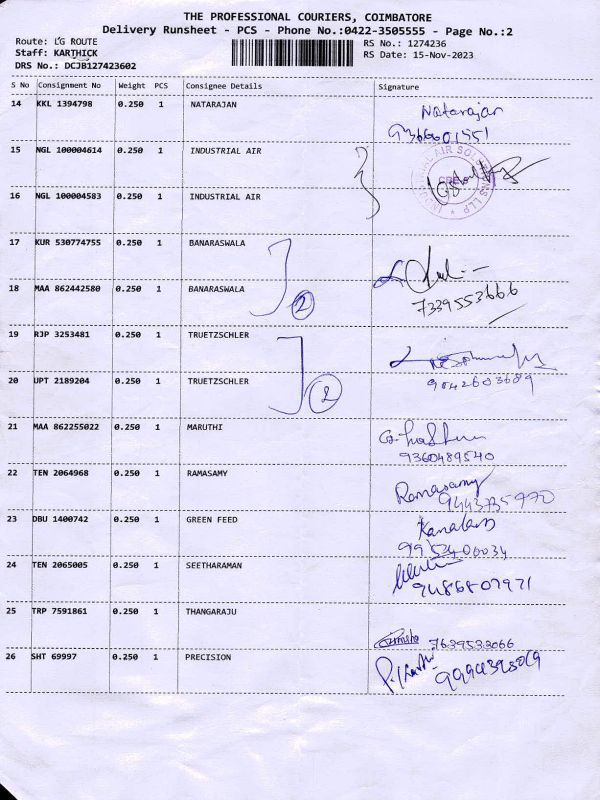 THE PROFESSIONAL COURIERS, COIMBATORE
Delivery Runsheet - PCS - Phone No.:0422-3505555 - Page No.:2
Route: L'G ROUTE
Staff: KARTHICK
DRS No.: DCJB127423602
RS No.: 1274236
RS Date: 15-Nov-2023
S No Consignment No Weight PCS Consignee Details Signature
14 KKL 1394798 0.250 1 NATARAJAN Natarajan
15 NGL 100004614 0.250 1 INDUSTRIAL AIR
16 NGL 100004583 0.250 1 INDUSTRIAL AIR
17 KUR 530774755 0.250 1 BANARASWALA
18 MAA 862442580 0.250 1 BANARASWALA
2
7339553666
19 RJP 3253481 0.250 1 TRUETZSCHLER
20 UPT 2189204 0.250 1 TRUETZSCHLER
2
9842603689
21 MAA 862255022 0.250 1 MARUTHI
9360489540
22 TEN 2064968 0.250 1 RAMASAMY Ramasamy
9443735970
23 DBU 1400742 0.250 1 GREEN FEED
24 TEN 2065005 0.250 1 SEETHARAMAN
9486807971
25 TRP 7591861 0.250 1 THANGARAJU
7639533066
26 SHT 69997 0.250 1 PRECISION